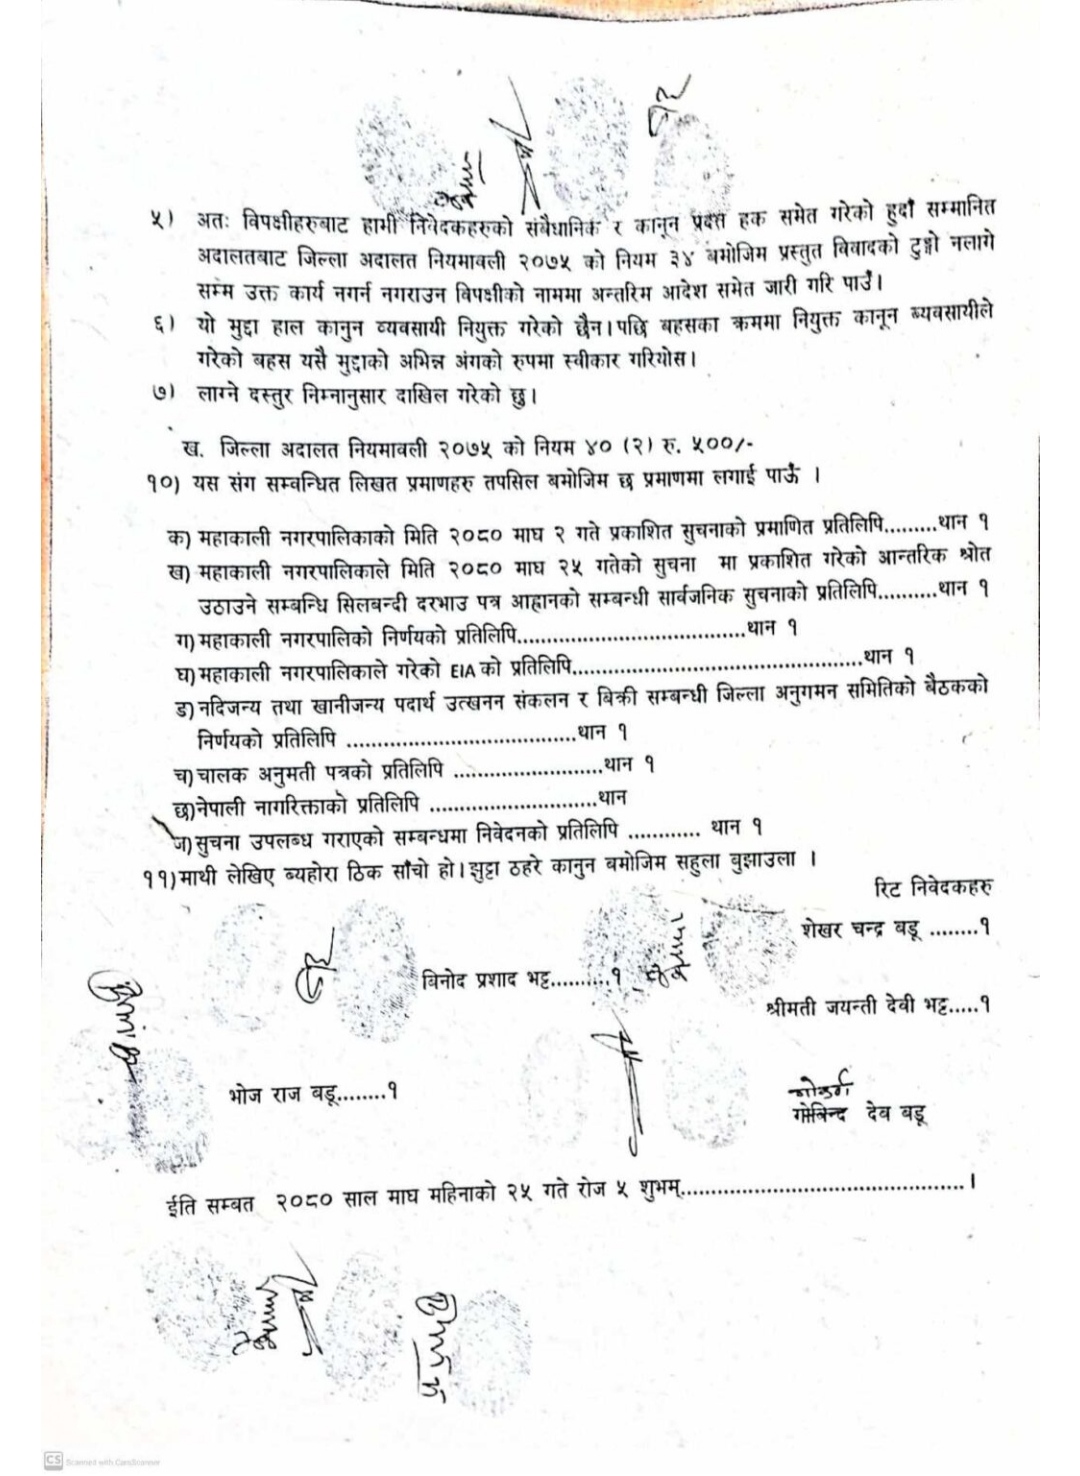 ५) अतः विपक्षीहरुबाट हामी निवेदकहरुको संबैधानिक र कानून प्रदत्त हक समेत गरेको हुदाँ सम्मानित
अदालतबाट जिल्ला अदालत नियमावली २०७५ को नियम ३४ बमोजिम प्रस्तुत विवादको टुङ्गो नलागे
सम्म उक्त कार्य नगर्न नगराउन विपक्षीको नाममा अन्तरिम आदेश समेत जारी गरि पाउँ।
६) यो मुद्दा हाल कानुन व्यवसायी नियुक्त गरेको छैन।पछि बहसका क्रममा नियुक्त कानून ब्यवसायीले
गरेको बहस यसै मुद्दाको अभिन्न अंगको रुपमा स्वीकार गरियोस।
७) लाग्ने दस्तुर निम्नानुसार दाखिल गरेको छु।
ख. जिल्ला अदालत नियमावली २०७५ को नियम ४० (२) रु. ५००/-
१०) यस संग सम्वन्धित लिखत प्रमाणहरु तपसिल बमोजिम छ प्रमाणमा लगाई पाऊँ ।
क) महाकाली नगरपालिकाको मिति २०८० माघ २ गते प्रकाशित सुचनाको प्रमाणित प्रतिलिपि.........थान १
ख) महाकाली नगरपालिकाले मिति २०८० माघ २५ गतेको सुचना मा प्रकाशित गरेको आन्तरिक श्रोत
उठाउने सम्बन्धि सिलबन्दी दरभाउ पत्र आह्वानको सम्बन्धी सार्वजनिक सुचनाको प्रतिलिपि..........थान १
ग) महाकाली नगरपालिको निर्णयको प्रतिलिपि.......................................थान १
घ) महाकाली नगरपालिकाले गरेको EIA को प्रतिलिपि..................................................थान १
ड) नदिजन्य तथा खानीजन्य पदार्थ उत्खनन संकलन र बिक्री सम्बन्धी जिल्ला अनुगमन समितिको बैठकको
निर्णयको प्रतिलिपि .......................................थान १
च) चालक अनुमती पत्रको प्रतिलिपि .........................थान १
छ)नेपाली नागरिक्ताको प्रतिलिपि ............................थान
ज) सुचना उपलब्ध गराएको सम्बन्धमा निवेदनको प्रतिलिपि ............ थान १
११)माथी लेखिए ब्यहोरा ठिक साँचो हो।झुट्टा ठहरे कानुन बमोजिम सहुला बुझाउला ।
रिट निवेदकहरु
शेखर चन्द्र बडू ........१
बिनोद प्रशाद भट्ट..........१
श्रीमती जयन्ती देवी भट्ट.....१
भोज राज बडू........१
गोकर्ण
गोबिन्द देव बडू
ईति सम्बत २०८० साल माघ महिनाको २५ गते रोज ५ शुभम्................................................।
CS Scanned with CamScanner